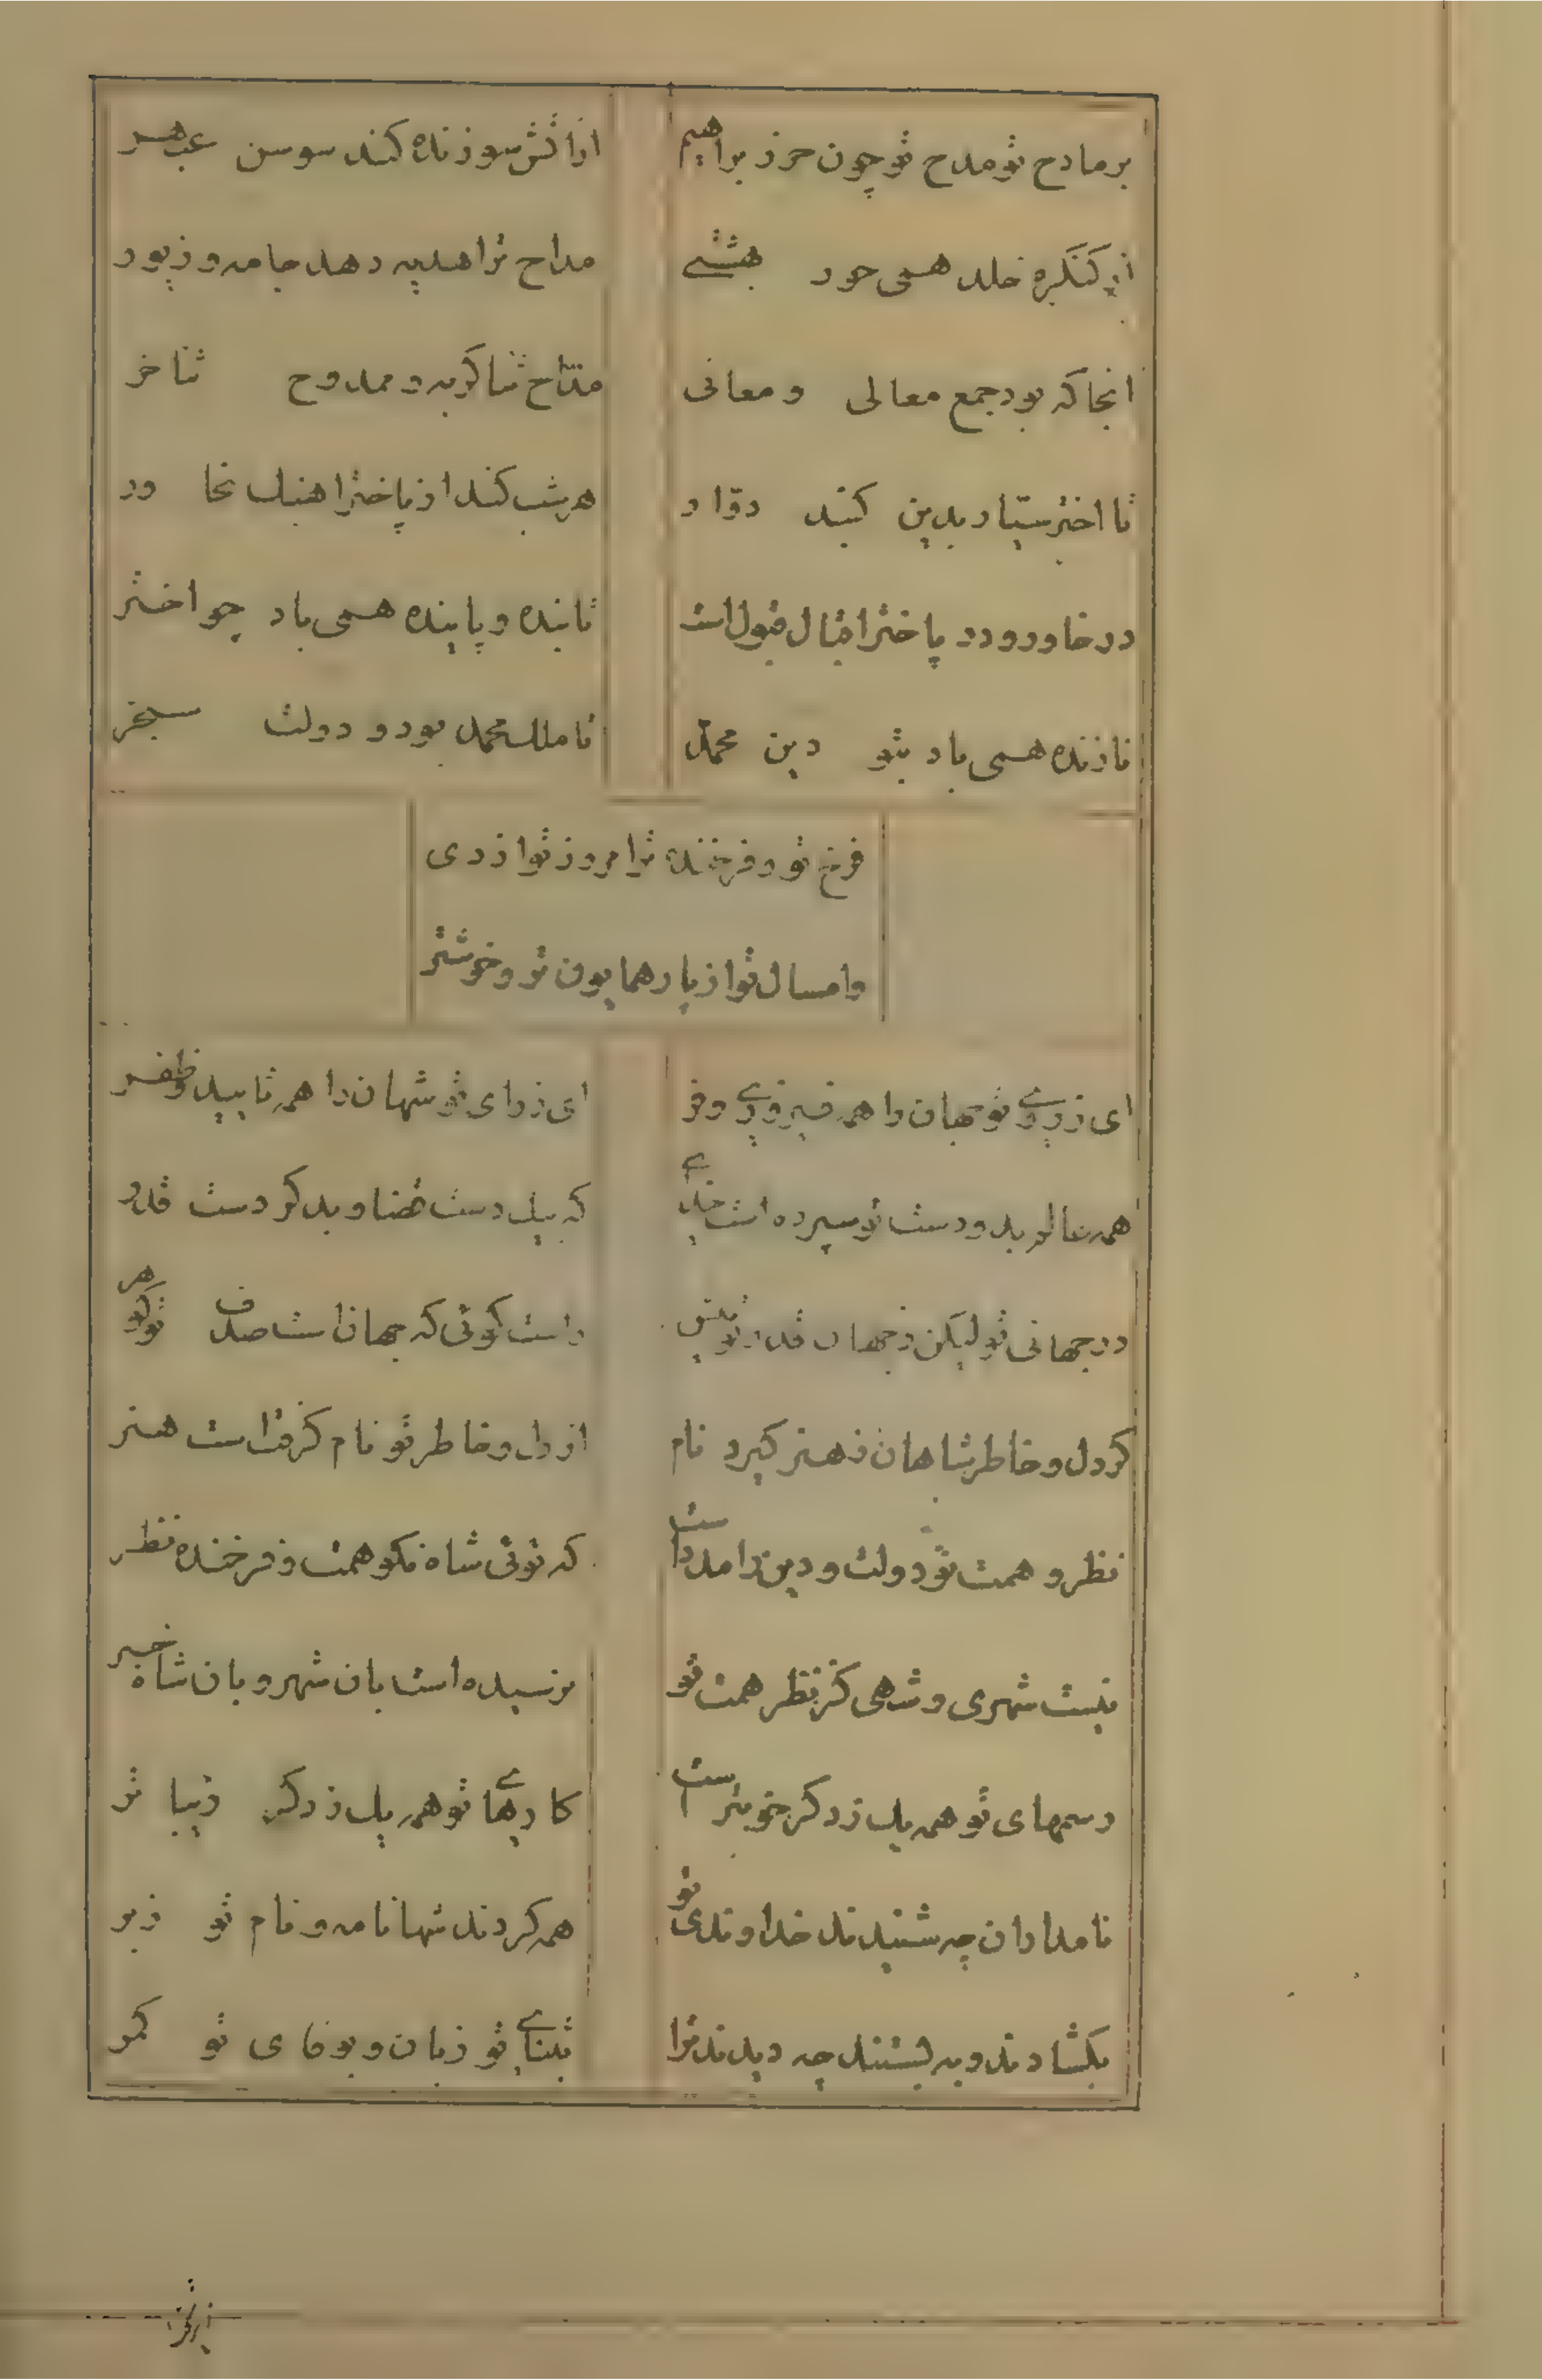 بر مادح تو مدح تو چون حرز براهیم
از آتش سوزنده کند سوسن عبهر
از کنگره خلد همی حور بهشتی
مداح ترا هدیه دهد جامه و زیور
انجا که بود جمع معالی و معانی
مداح ثنا گر به و ممدوح ثنا خر
تا اختر سیار بدین کنبد دوار
هر شب کند از باختر اهنك بخاور
در خاور و در باختر اقبال قبول است
تابنده و پاینده همی باد چو اختر
نازنده همی باد بتو دین محمد
تا ملك محمد بود و دولت سنجر
فرخ تر و فرخنده تر امروز تو از دی
و امسال تو از پار همایون تر و خوشتر
ای ز روی تو جهان را همه فیروزی و فر
ای ز رای تو شهان را همه تایید و ظفر
همه عالم بدو دست تو سپرده است خدای
که بیك دست قضا و بد گر دست قدر
در جهانی تو لیکن ز جهان قدر تو بیش
راست کوئی که جهان است صدف تو گوهر
گر دل و خاطر شاهان ز هنر کیرد نام
از دل و خاطر تو نام کرفته است هنر
نظر و همت تو دولت و دین را مدد است
که توئی شاه نکو همت و فرخنده نظر
نیست شهری و شهی کز نظر همت تو
نرسیده است بان شهر و بان شاه خبر
رسمهای تو همه یك ز دگر خوبتر است
کارهای تو همه یك ز دگر زیبا تر
نامداران چه شنیدند خداوندی تو
همه کردند شها نامه و نام تو ز بر
بکشادند و به بستند چه دیدند ترا
بثنای تو زبان و بوفای تو کمر